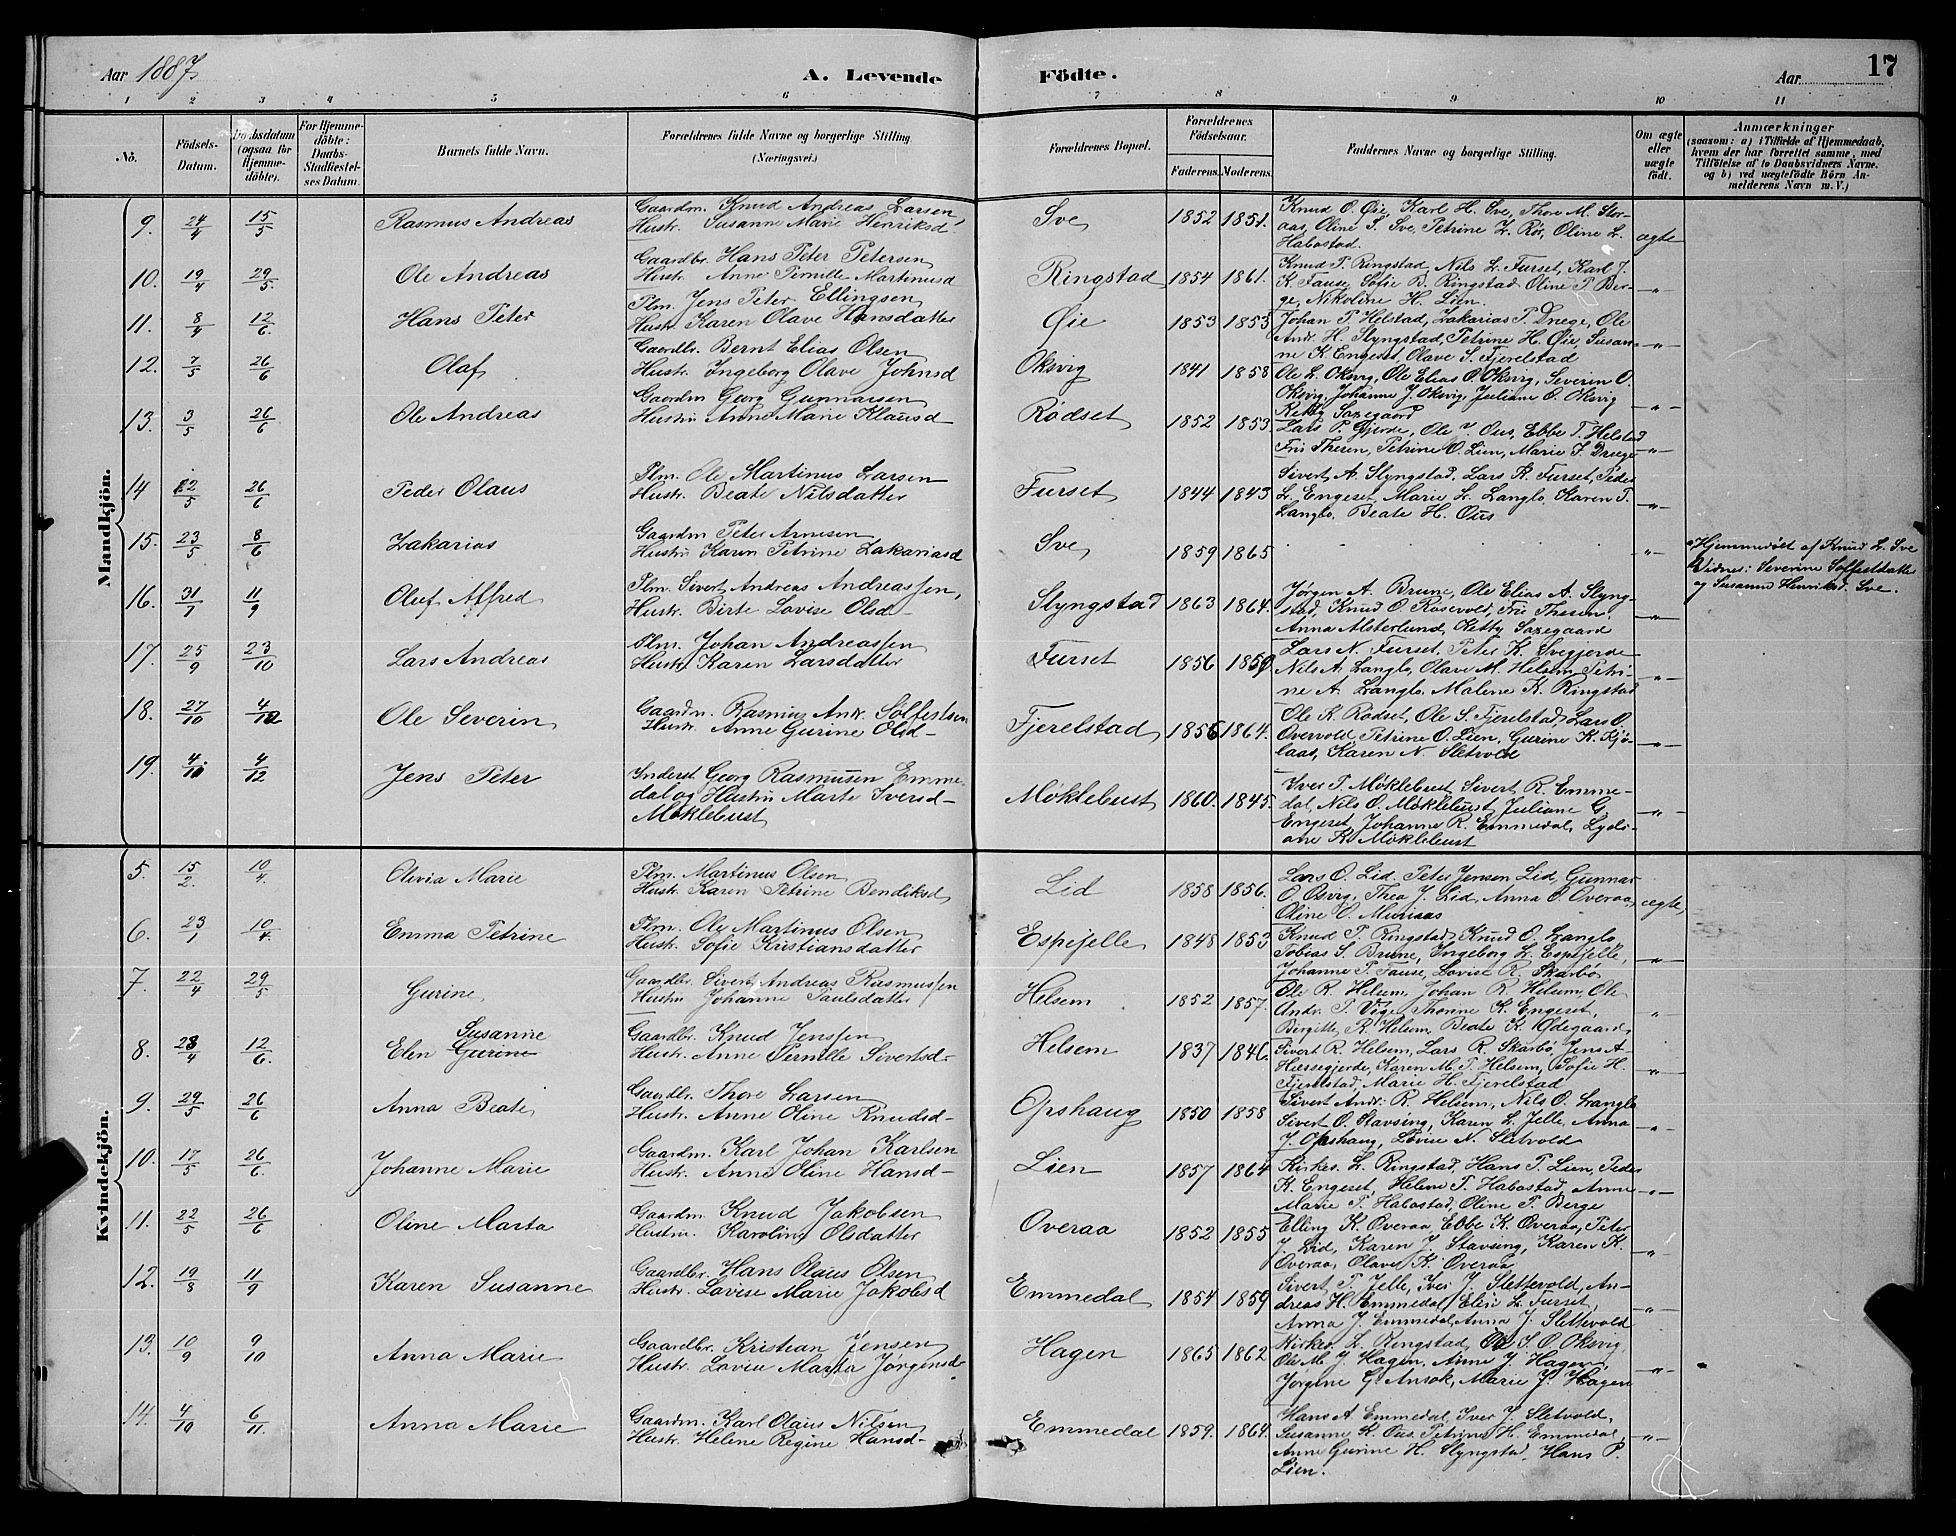 Aar 1887
A. Levende
Födte.
Aar
17
1 2 3 4 5 6 7 8 9 10 11
No.
Födsels-Datum.
Daabsdatum (ogsaa for Hjemme-döbte).
For Hjemme-döbte: Daabs-Stadfæstel-ses Datum.
Barnets fulde Navn.
Forældrenes fulde Navne og borgerlige Stilling. (Næringsvei.)
Forældrenes Bopæl.
Forældrenes Födselsaar.
Faderens. Moderens.
Faddernes Navne og borgerlige Stilling.
Om ægte eller uægte födt.
Anmærkninger
(saasom: a) i Tilfælde af Hjemmedaab,
hvem der har forrettet samme, med
Tilföielse af to Daabsvidners Navne.
og b) ved uægtefödte Börn An-
melderens Navn m. V.)
Mandkjön.
9. 24/4 15/5 Rasmus Andreas
Gaardm. Knud Andreas Larsen,
Hustr. Susanne Marie Henriksd
Sve 1852 1851.
Knud O. Øie, Karl H. Sve, Thore M. Stor-
aas, Oline S. Sve, Petrine L. Rör, Oline L.
Habostad.
ægte
10. 19/4 29/5 Ole Andreas
Gaardbr. Hans Peter Petersen
Hustr. Anne Pernille Martinusd
Ringstad 1854 1861.
Knud P. Ringstad, Nils L. Furset, Karl J.
K. Fause, Sofie B. Ringstad, Oline P. Ber-
ge, Nikoline H. Lien.
"
11. 8/4 12/6 Hans Peter
Plm. Jens Peter Ellingsen
Hustr. Karen Olave Hansdatter
Øie 1853 1853
Johan P. Helstad, Zakarias P. Drege, Ole
Andr. H. Slyngstad, Petrine H. Øie, Susan-
ne K. Engeset, Olave S. Fjerelstad
"
12. 7/5 26/6 Olaf
Gaardbr. Bernt Elias Olsen
Hustr. Ingeborg Olave Johnsd
Oksvig 1841 1858
Ole L. Oksvig, Ole Elias O. Oksvig, Severin O.
Oksvig, Johanne J. Oksvig, Juliane O. Oksvig
Ketty Sazegaard
"
13. 3/5 26/6 Ole Andreas
Gaardm Georg Gunnarsen
Hustru Anne Marie Klausd
Rödset 1852 1853.
Lars P. Gjerde, Ole J Ous, Ebbe T. Helstad
Fru Thesen, Petrine O. Lien, Marie Z. Drege
"
14 12/5 26/6 Peder Olaus
Plm. Ole Martinus Larsen
Hustr. Beate Nilsdatter
Furset 1844 1843
Sivert A. Slyngstad, Lars R. Furset, Peder
L. Engeset, Marie L. Langlo, Karen T.
Langlo, Beate H. Ous
"
15. 23/5 8/6 Zakarias
Gaardm Peter Arnesen
Hustru Karen Petrine Zakariasd
Sve 1859 1865
"
Hjemmedöbt af Knud L. Sve
Vidner: Severine Solfestdatter
og Susanne Henriksd. Sve.
16. 31/7 11/9 Oluf Alfred
Plm. Sivert Andreas Andreassen,
Hustr. Birte Lovise Olsd
Slyngstad 1863 1864.
Jørgen A. Brune, Ole Elias A. Slyng-
stad, Knud O. Rosevold, Fru Thesen,
Anna Alsterlund, Ketty Sazegaard
"
17. 25/9 23/10 Lars Andreas
Plm. Johan Andreassen
Hustr. Karen Larsdatter
Furset 1856 1859
Lars N. Furset, Peter K. Svegjerde
Nils A. Langlo, Olave M. Helsem, Petri-
ne A. Langlo, Malene K. Ringstad
"
18. 27/10 4/12 Ole Severin
Gaardm. Rasmus Andr. Solfestsen
Hustr. Anne Gurine Olsd
Fjerelstad 1856 1864.
Ole K. Rødset, Ole S. Fjerelstad, Lars O.
Overvold, Petrine O. Lien, Gurine K. Fjø-
laas, Karen N. Sletvold
"
19. 4/11 4/12 Jens Peter
Inderst Georg Rasmusen Emme-
dal og Hustru Marte Iversd
Møklebust
Møklebust 1860. 1845.
Iver P. Møklebust, Sivert R. Emme-
dal, Nils O. Møklebust, Juliane G.
Engeset, Johanne R. Emmedal, Lydi-
ane K. Møklebust
"
Kvindekjön.
5. 15/2. 10/4. Olevia Marie
Plm. Martinus Olsen
Hustr. Karen Petrine Bendiksd
Lid 1858 1856.
Lars O. Lid, Peter Jensen Lid, Gunnar
O. Osvig, Thea J. Lid, Anna O. Overaa,
Oline O. Muriaas
ægte,
6. 23/1 10/4. Emma Petrine
Plm. Ole Martinus Olsen
Hustr. Sofie Kristiansdatter
Espejelle 1848 1853
Knud P. Ringstad, Knud O. Langlo
Tobias S. Brune, Ingeborg L. Espejelle,
Johanne P. Fause, Lovise R. Skarbø
"
7. 22/4 29/5 Gurine
Gaardbr. Sivert Andreas Rasmussen
Hustru Johanne Paulsdatter
Helsem 1852 1857.
Ole R. Helsem, Johan R. Helsem, Ole
Andr. P. Vige, Thorine K. Engeset,
Bergitte R. Helsem, Beate K. Ødegaard
"
8. 28/4 12/6. Elen Susanne Gurine
Gaardbr. Knud Jenssen
Hustr. Anne Pernille Sivertsd.
Helsem 1837 1846.
Sivert R. Helsem, Lars R. Skarbø, Jens A
Hessegjerde, Karen M. P. Helsem, Sofie H.
Fjerelstad, Marie H. Fjerelstad
"
9. 29/5 26/6 Anna Beate
Gaardbr. Thore Larsen
Hustr. Anne Oline Knudsd
Opshaug 1850 1858
Sivert Andr. R. Helsem, Nils O. Langlo
Sivert O. Stavsing, Karen L. Jelle, Anna
J. Opshaug, Lovise N. Sletvold
"
10. 17/5 26/6. Johanne Marie
Gaardm. Karl Johan Karlsen
Hustr. Anne Oline Hansd
Lien 1857 1864
Kirkes. L. Ringstad, Hans P. Lien, Peder
K. Engeset, Helene P. Habostad, Anne
Marie P. Habostad, Oline P. Berge
"
11. 22/5 26/6 Oline Marta
Gaardm. Knud Jakobsen
Hustru. Karoline Olsdatter
Overaa 1852 1855
Elling K. Overaa, Ebbe K. Overaa, Peter
J. Lid, Karen J. Stavsing, Karen K.
Overaa, Olave K. Overaa
"
12. 19/8 11/9 Karen Susanne
Gaardbr. Hans Olaus Olsen
Hustr. Lovise Marie Jakobsd
Emmedal 1854 1859
Sivert P. Jelle, Iver J. Slettevold, An-
dreas H. Emmedal, Eline L. Furset,
Anna J. Emmedal, Anna J. Slettevold
"
13. 10/9 9/10 Anna Marie
Gaardbr. Kristian Jensen
Hustr. Lovise Marta Jørgensd.
Hagen 1865 1862
Kirkes. L. Ringstad, Ole S. O. Oksvig,
Ole M. J. Hagen, Anne J. Hagen,
Jørgine G. Ansok, Marie J. Hagen
"
14. 4/10 6/11. Anna Marie
Gaardm. Karl Olaus Nilsen
Hustr. Helene Regine Hansd
Emmedal 1859. 1864.
Hans A. Emmedal, Iver J. Sletvold,
Susanne K. Ous, Petrine H. Emmedal,
Anne Gurine H. Slyngstad, Hans P.
Lien.
"